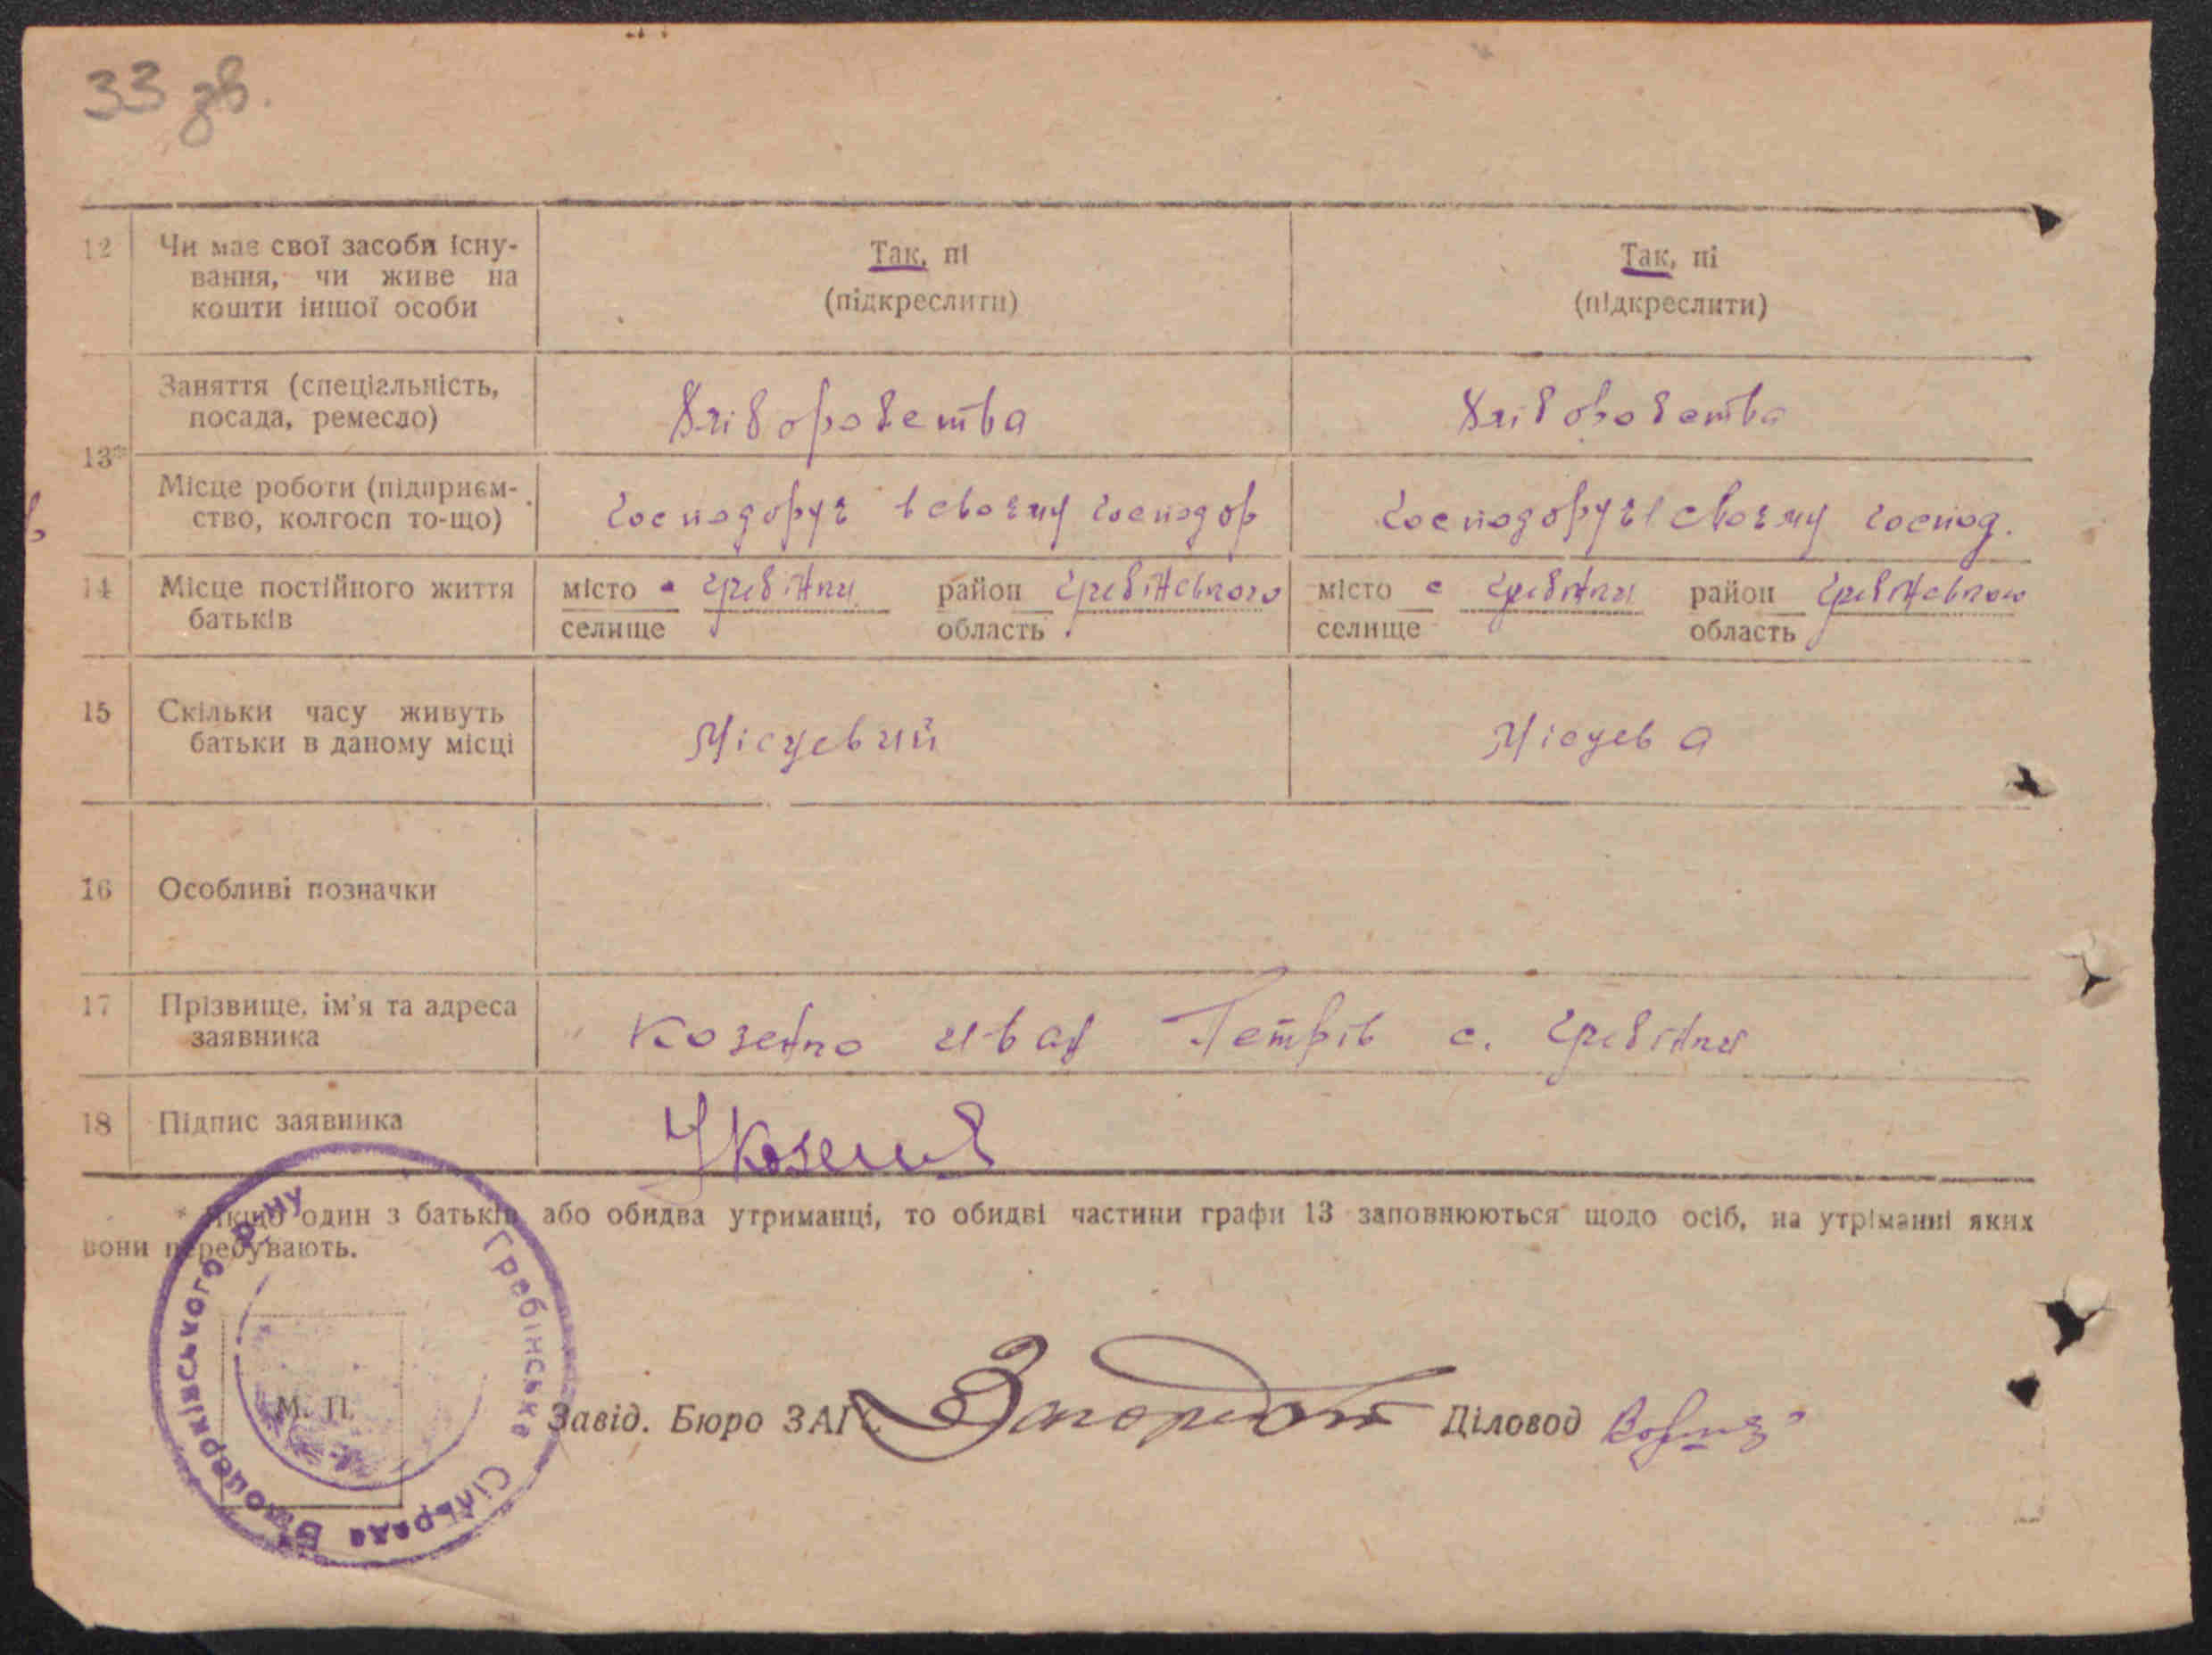 33 зв.
12 Чи має свої засоби існу-
вання, чи живе на
кошти іншої особи
Так, ні
(підкреслити)
Так, ні
(підкреслити)
13*
Заняття (спеціальність,
посада, ремесло)
Хліборобства
Хліборобства
Місце роботи (підприєм-
ство, колгосп то-що)
Господорує в своєму господор
Господорує в своєму господ.
14 Місце постійного життя
батьків
місто с Гребінки район Гребінського
селище область
місто с Гребінки район Гребінського
селище область
15 Скільки часу живуть
батьки в даному місці
Місцевий
Місцева
16 Особливі позначки
17 Прізвище, ім'я та адреса
заявника
Козенко Иван Петрів с. Гребінки
18 Підпис заявника
* Якщо один з батьків або обидва утриманці, то обидві частини графи 13 заповнюються щодо осіб, на утріманні яких
вони перебувають.
Гребінська Сільрада Білоцерківського р-ну
М. П.
Завід. Бюро ЗАГС
Діловод